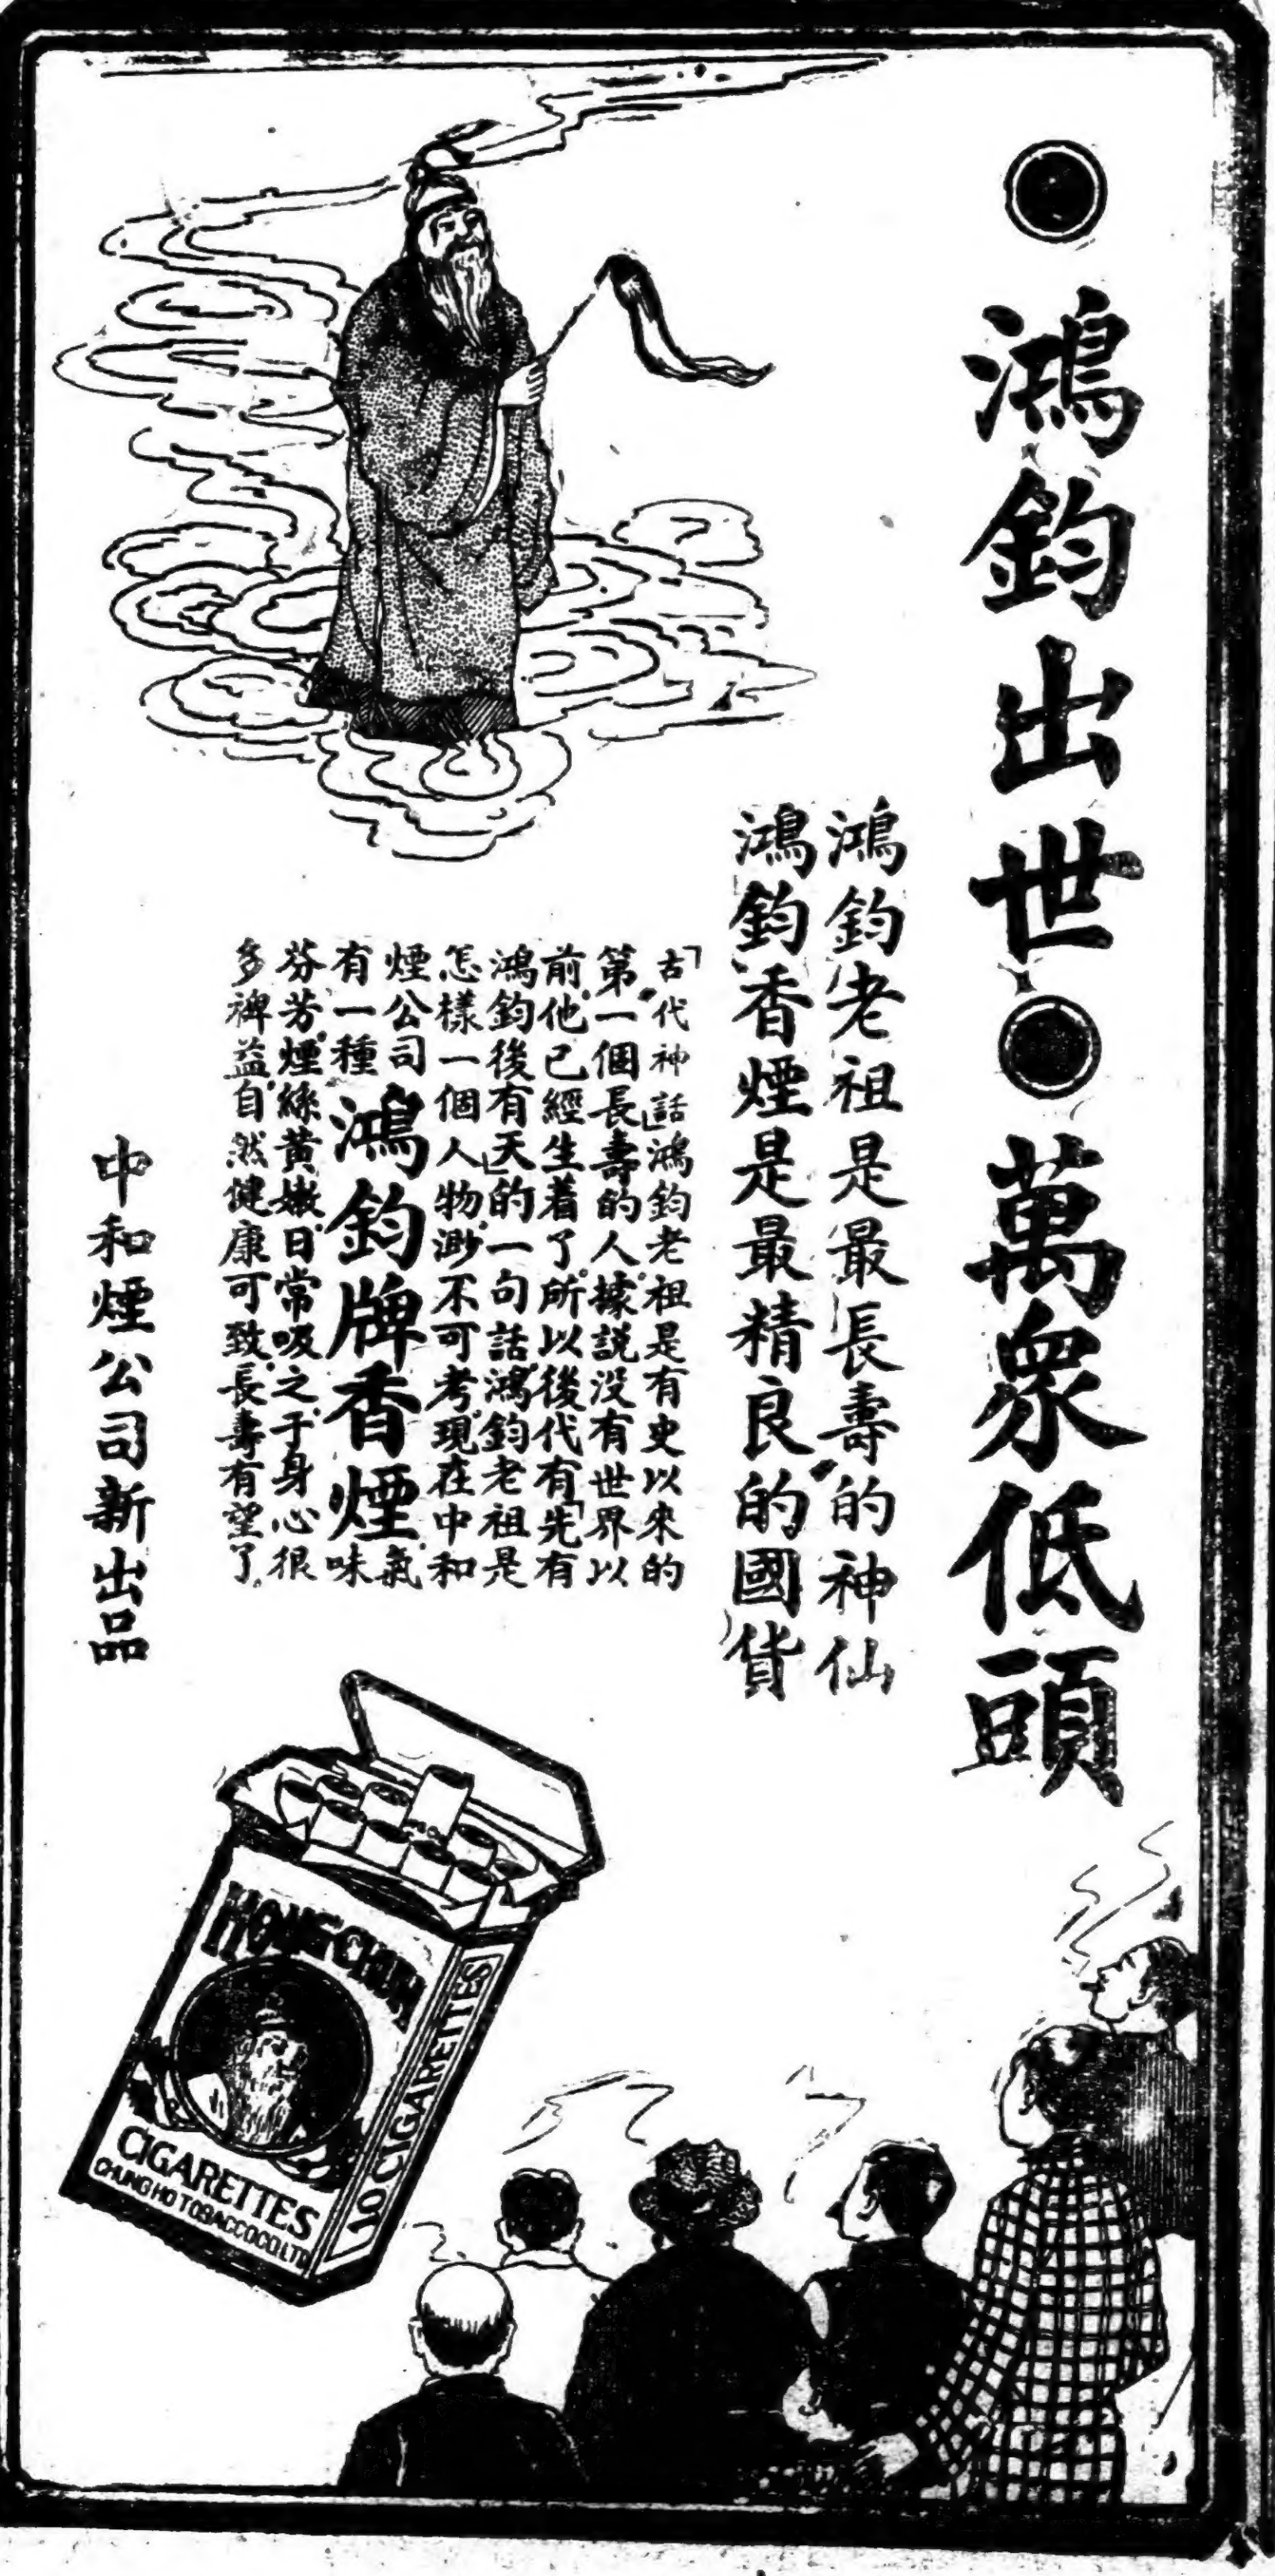 ●鴻鈞出世●萬衆低頭
鴻鈞老祖是最長壽的神仙
鴻鈞香煙是最精良的國貨
「古代神話」鴻鈞老祖是有史以來的
第一個長壽的人據説没有世界以
前他已經生着了所以後代有「先有
鴻鈞後有天」的一句話鴻鈞老祖是
怎樣一個人物渺不可考現在中和
煙公司
有一種鴻鈞牌香煙氣味
芬芳煙絲黄嫩日常吸之于身心很
多裨益自然健康可致長壽有望了。
中和煙公司新出品
HONG CHUN
CIGARETTES
CHUNG HO TOBACCO CO LTD
10 CIGARETTES